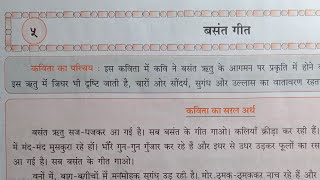 ५
बसंत गीत
कविता का परिचय : इस कविता में कवि ने बसंत ऋतु के आगमन पर प्रकृति में होने व
इस ऋतु में जिधर भी दृष्टि जाती है, चारों ओर सौंदर्य, सुगंध और उल्लास का वातावरण रहत
कविता का सरल अर्थ
बसंत ऋतु सज-धजकर आ गई है। सब बसंत के गीत गाओ। कलियाँ क्रीड़ा कर रही हैं।
में मंद-मंद मुसकुरा रहे हों। भौंरे गुन-गुन गुंजार कर रहे हैं और इधर से उधर उड़कर फूलों का रस
आ गई है। सब बसंत के गीत गाओ।
वनों में, बाग-बगीचों में मनमोहक सुगंध उड़ रही है। मोर ठुमक-ठुमककर नाच रहे हैं और